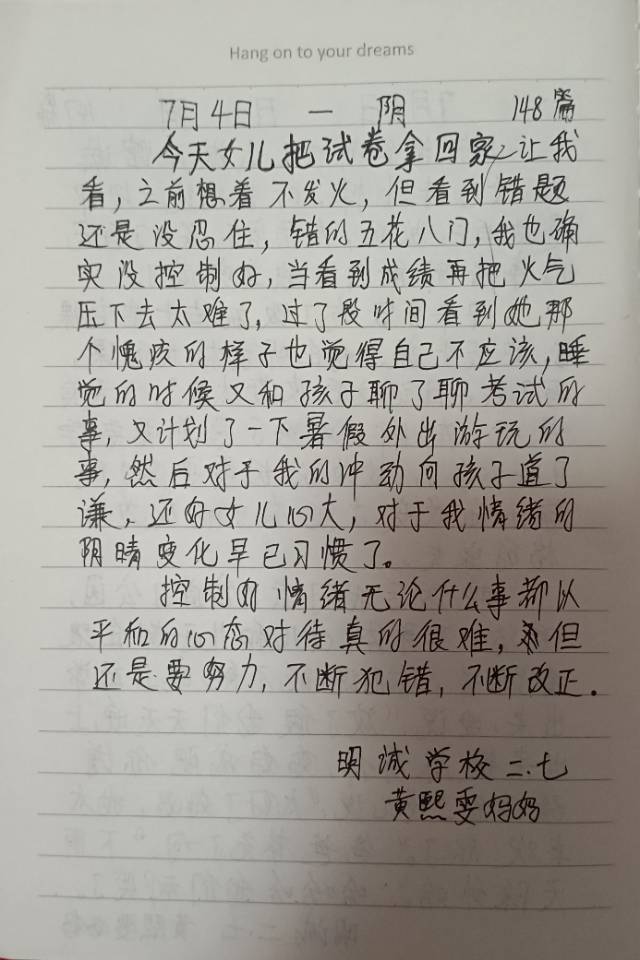 Hang on to your dreams
7月4日 一 阴 148篇
今天女儿把试卷拿回家让我
看，之前想着不发火，但看到错题
还是没忍住，错的五花八门，我也确
实没控制好，当看到成绩再把火气
压下去太难了，过了段时间看到她那
个愧疚的样子也觉得自己不应该，睡
觉的时候又和孩子聊了聊考试的
事，又计划了一下暑假外出游玩的
事，然后对于我的冲动向孩子道了
谦，还好女儿心大，对于我情绪的
阴晴变化早已习惯了。
控制好情绪无论什么事都以
平和的心态对待真的很难，但
还是要努力，不断犯错，不断改正。
明诚学校二.七
黄熙雯妈妈